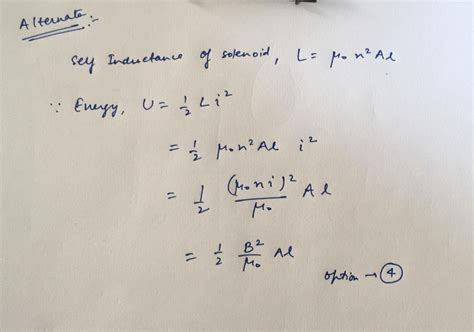 Alternate:-
Self Inductance of solenoid, L = μ₀ n² Al
∵ Energy, U = 1/2 L i²
= 1/2 μ₀ n² Al i²
= 1/2 (μ₀ n i)²/μ₀ Al
= 1/2 B²/μ₀ Al
option → 4